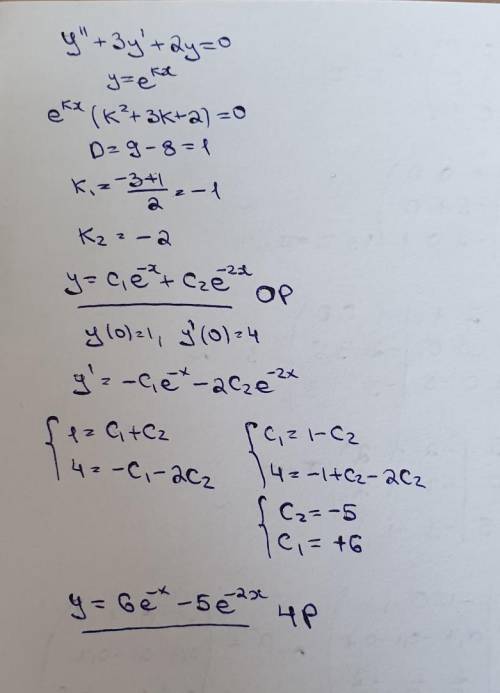 y'' + 3y' + 2y = 0
y = e^{kx}
e^{kx} (k² + 3k + 2) = 0
D = 9 - 8 = 1
K₁ = \frac{-3+1}{2} = -1
K₂ = -2
y = C₁e^{-x} + C₂e^{-2x} ОР
y(0)=1, y'(0)=4
y' = -C₁e^{-x} - 2C₂e^{-2x}
{ 1 = C₁ + C₂
4 = -C₁ - 2C₂
{ C₁ = 1 - C₂
4 = -1 + C₂ - 2C₂
{ C₂ = -5
C₁ = +6
y = 6e^{-x} - 5e^{-2x} ЧР